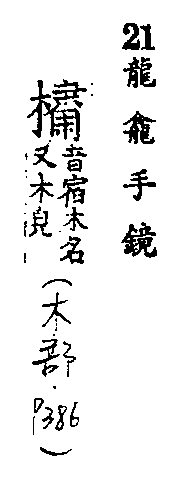 21龍龕手鏡
橚音宿木名
又木皃
(木部.P386)